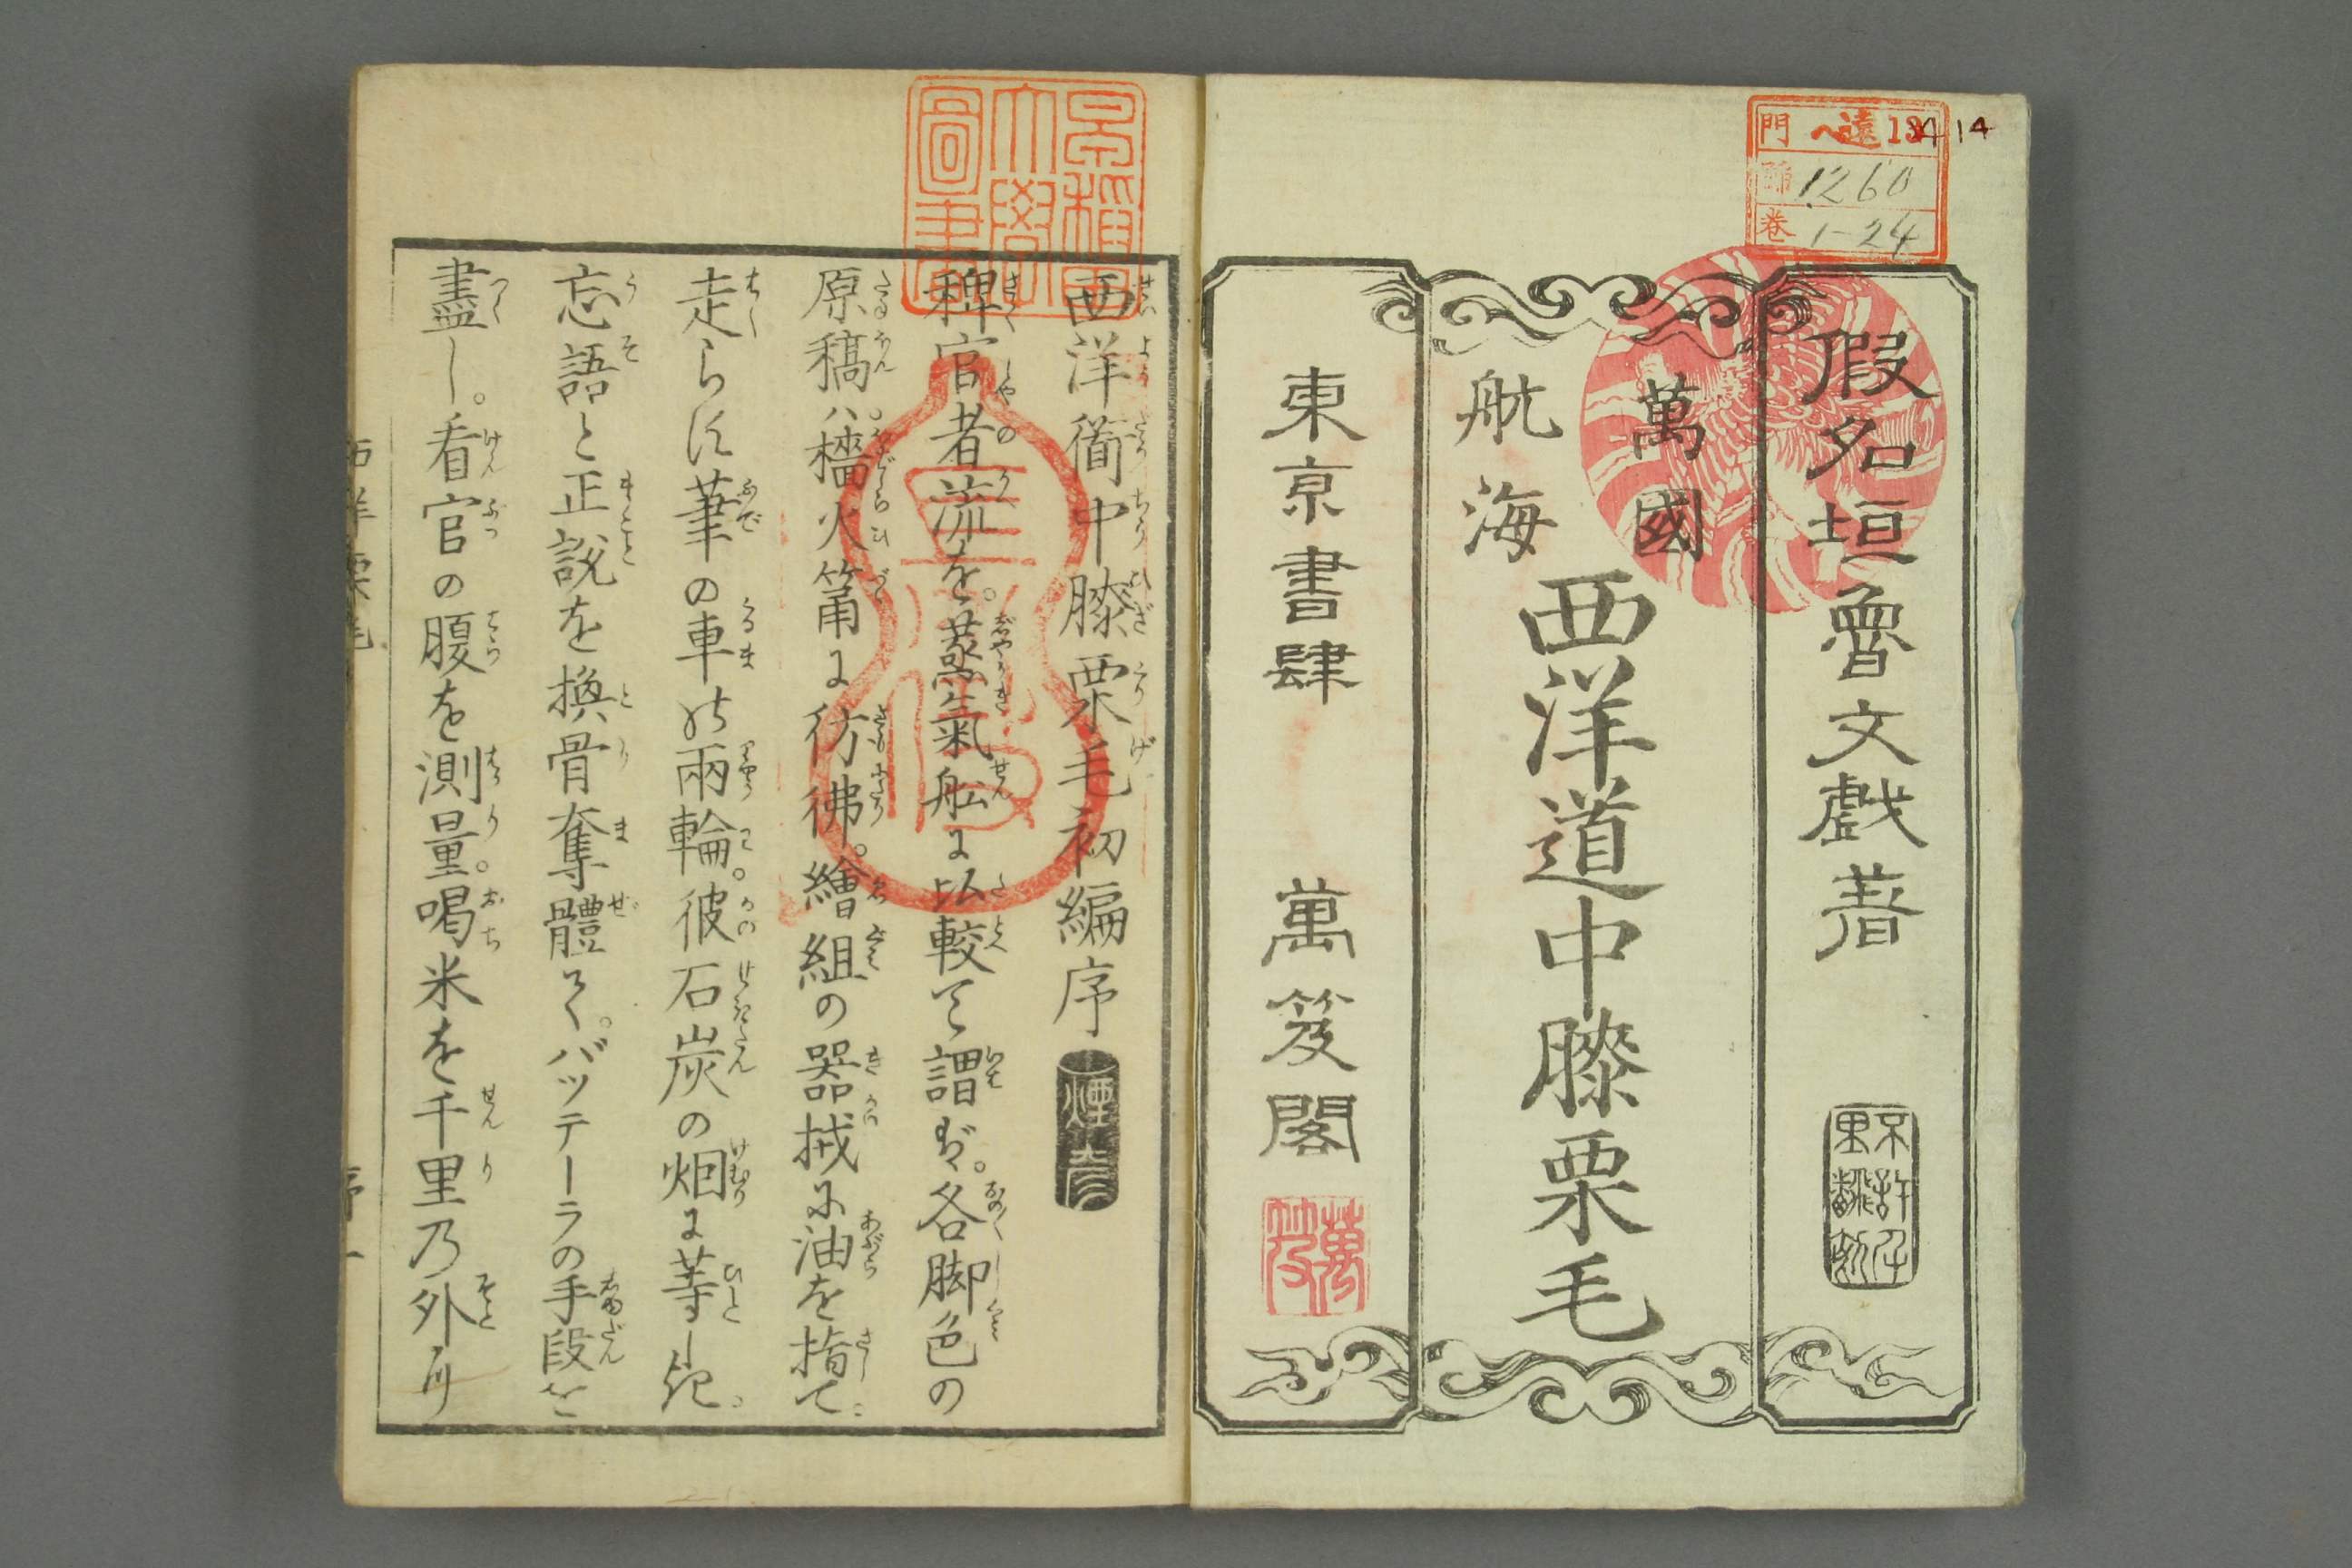 門 ヘ遠 13
1260
巻 1-24
14
假名垣魯文戯著
萬國
航海
西洋道中膝栗毛
東京書肆 萬笈閣
萬笈
早稲田大學圖書
西洋衜中膝栗毛初編序
稗官者流を。蒸氣舩に以較て謂ば。各脚色の
原稿ハ檣火筩に彷彿。繪組の器械に油を指て。
走らす筆の車の兩輪。彼石炭の烟に等しき。
忘語と正説を換骨奪體て。バッテーラの手段を
盡し。看官の腹を測量。喝米を千里乃外に